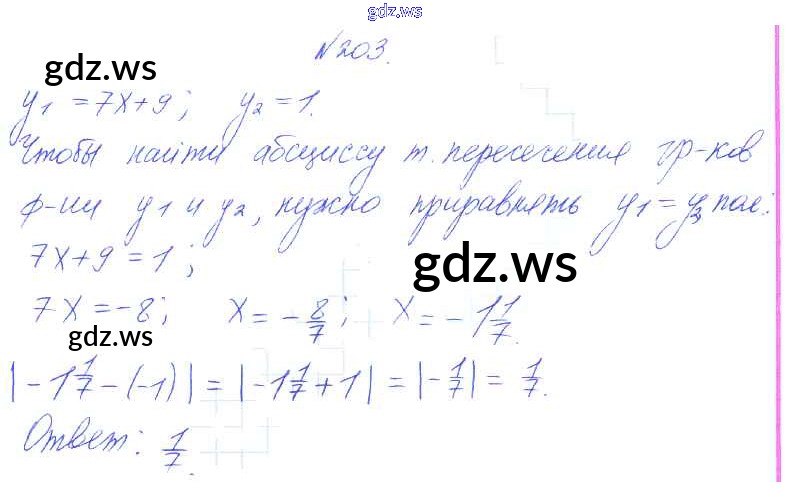 gdz.ws
№203.
gdz.ws
y₁ = 7x+9; y₂ = 1.
Чтобы найти абсциссу т. пересечения гр-ков
ф-ии y₁ и y₂, нужно приравнять y₁ = y₂
7x+9 = 1;
gdz.ws
7x = -8; x = -8/7; x = -1 1/7.
gdz.ws
|-1 1/7 - (-1)| = |-1 1/7 + 1| = |-1/7| = 1/7.
Ответ: 1/7.
gdz.ws